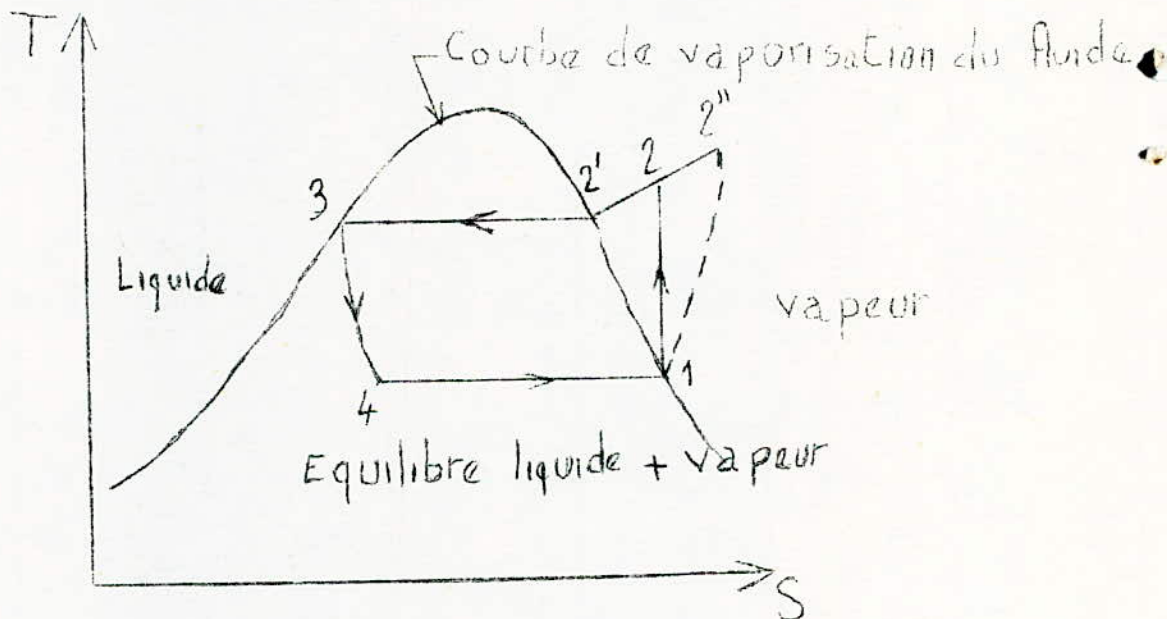 T
Courbe de vaporisation du fluide
2"
2
2'
3
Liquide
vapeur
1
4
Equilibre liquide + vapeur
S